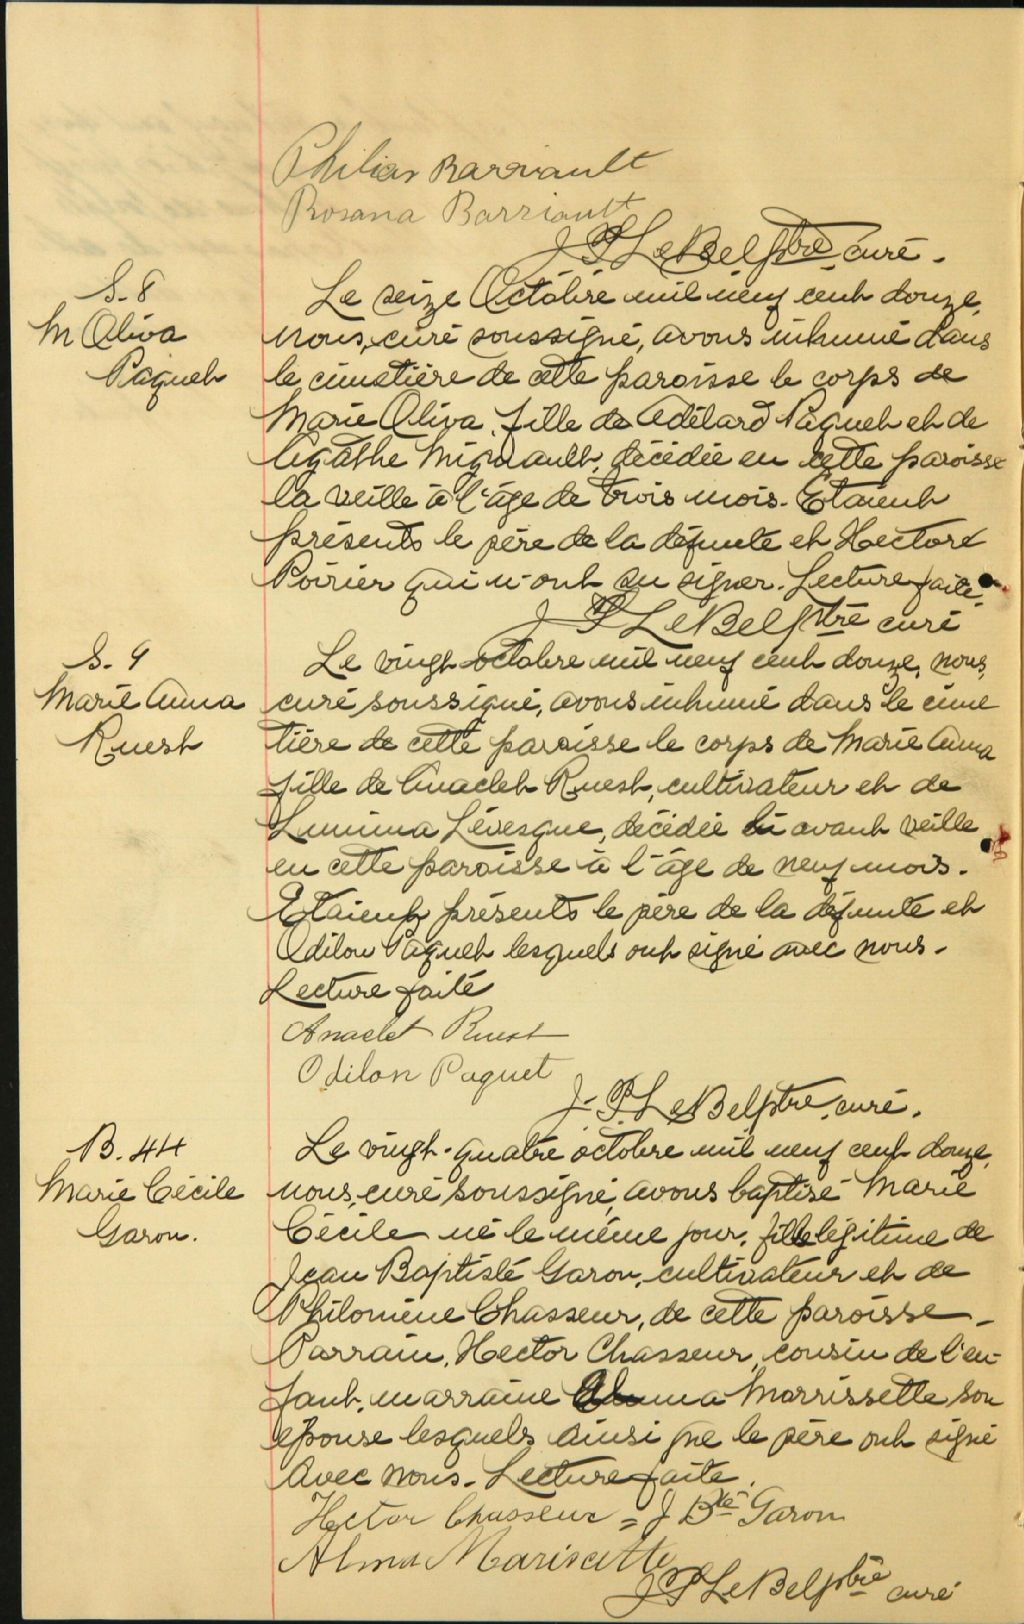 Philias Barriault
Rosana Barriault
J P LeBel ptre, curé.
S. 8
M Oliva
Paquet
Le seize Octobre mil neuf cent douze,
nous, curé soussigné, avons inhumé dans
le cimetière de cette paroisse le corps de
Marie Oliva, fille de Adélard Paquet et de
Agathe Mignault, décédée en cette paroisse
la veille à l'âge de trois mois. Etaient
présents le père de la défunte et Hector
Poirier qui n'ont su signer. Lecture faite.
J P LeBel ptre curé
S. 9
Marie Anna
Ruest
Le vingt octobre mil neuf cent douze, nous,
curé soussigné, avons inhumé dans le cime
tière de cette paroisse le corps de Marie Anna
fille de Anaclet Ruest, cultivateur et de
Lévesque, décédée avant veille
en cette paroisse à l'âge de neuf mois.
Etaient présents le père de la défunte et
Odilon Paquet lesquels ont signé avec nous.
Lecture faite
Anaclet Ruest
Odilon Paquet
J. P. LeBel ptre, curé.
B. 44
Marie Cécile
Garon.
Le vingt-quatre octobre mil neuf cent douze,
nous, curé soussigné, avons baptisé Marie
Cécile né le même jour, fille légitime de
Jean Baptiste Garon, cultivateur et de
Philomène Chasseur, de cette paroisse.
Parrain, Hector Chasseur, cousin de l'en-
fant, marraine Alma Morrissette son
épouse lesquels ainsi que le père ont signé
avec nous. Lecture faite.
Hector Chasseur = J Bte Garon
Alma Marisette
J P LeBel ptre curé